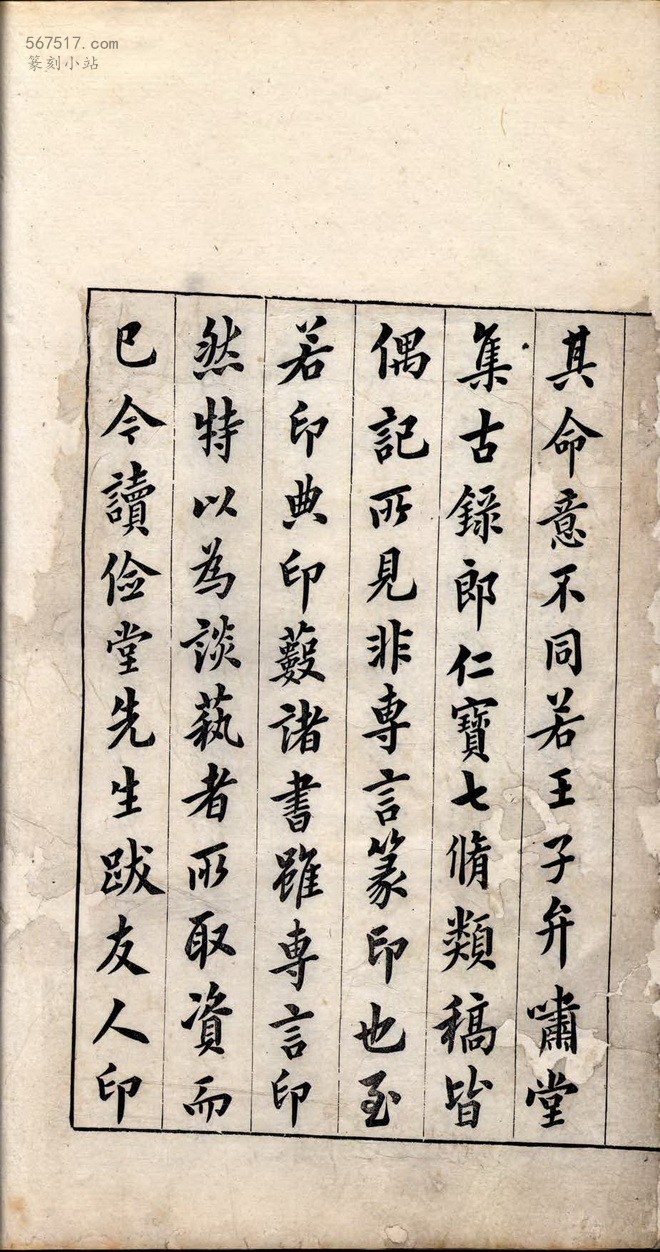 567517.com
篆刻小站
其命意不同若王子弁嘯堂
集古錄郎仁寶七脩類稿皆
偶記所見非專言篆印也至
若印典印藪諸書雖專言印
然特以為談藝者所取資而
已今讀儉堂先生跋友人印